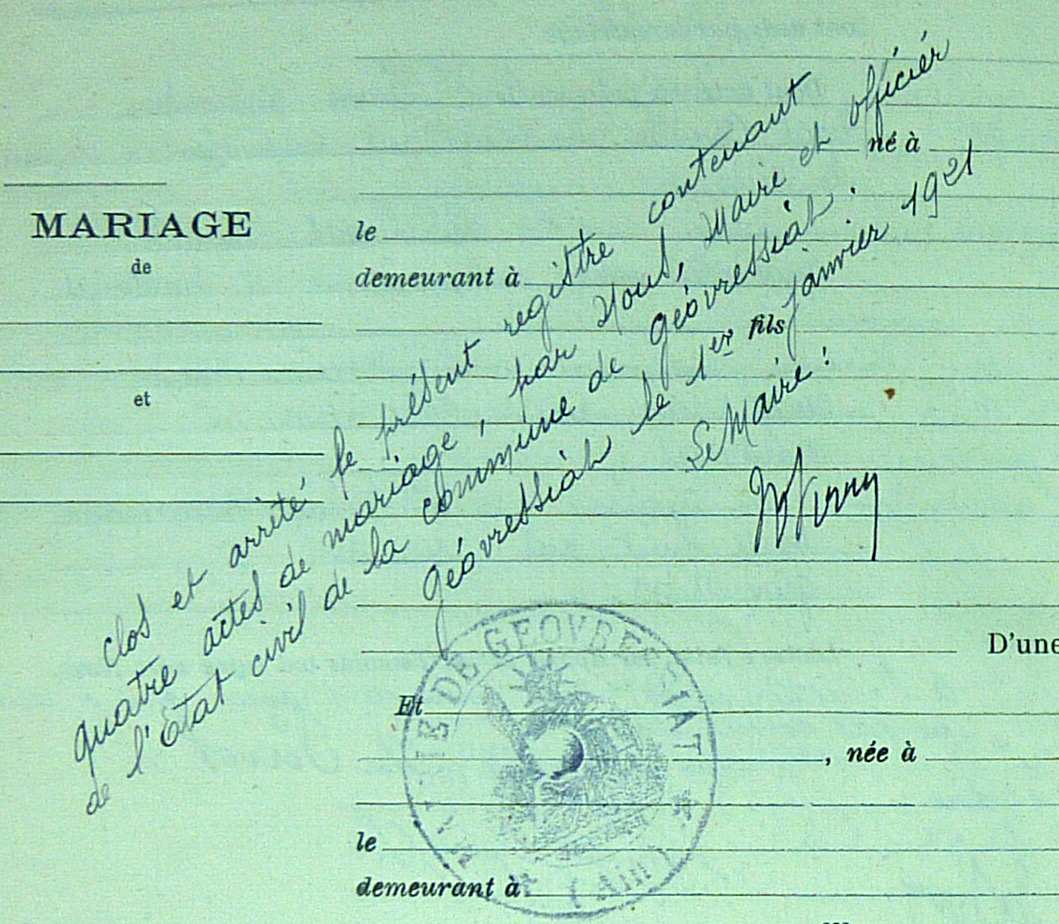 MARIAGE
de
et
né à
le
demeurant à
fils
clos et arrité le présent registre contenant
quatre actes de mariage, par Nous, Maire et officier
de l'Etat civil de la commune de Géovressiat.
Géovressiat le 1er janvier 1921
Le Maire:
D'une
Et
, née à
le
demeurant à
MAIRIE DE GEOVRESSIAT
(AIN)